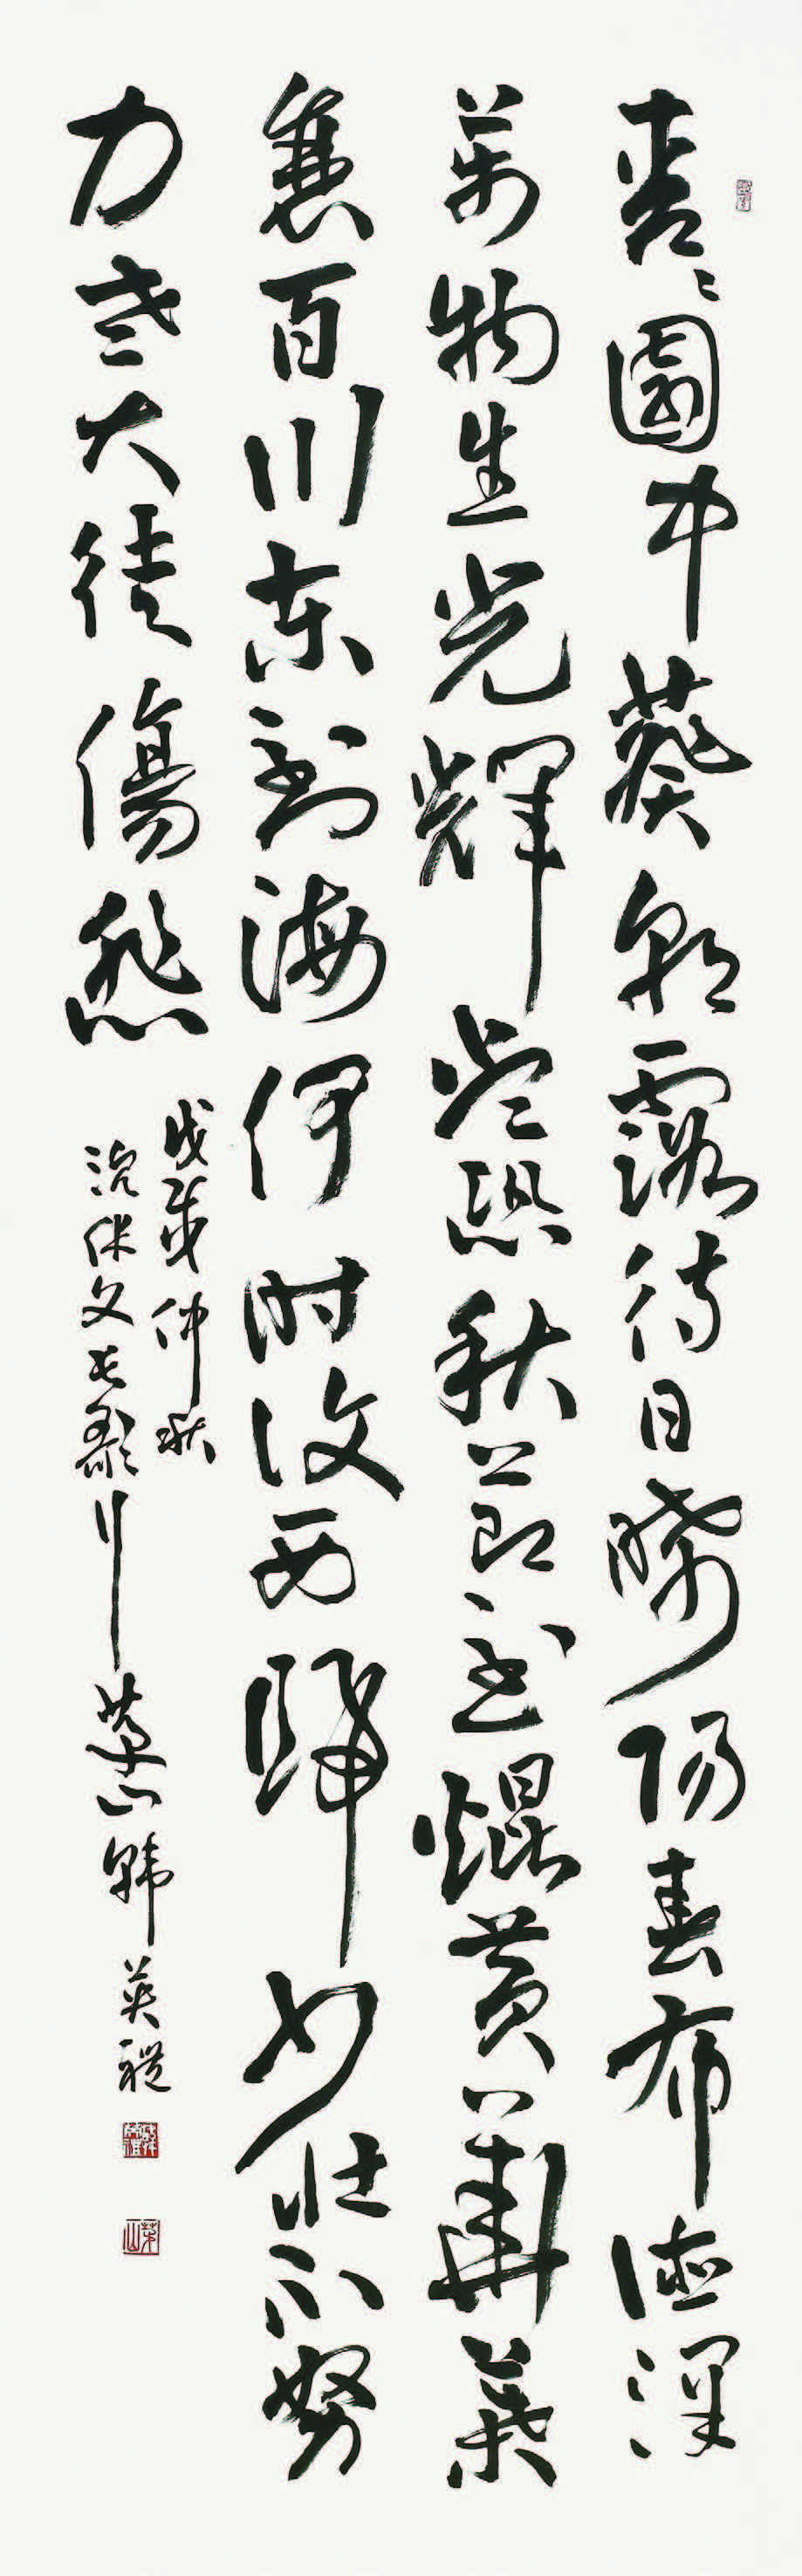 青〻園中葵朝露待日晞陽春布德澤
萬物生光輝常恐秋節至焜黃華葉
衰百川東到海何时復西歸少壯不努
力老大徒傷悲
戊戌仲秋
沈休文長歌行 山韓英